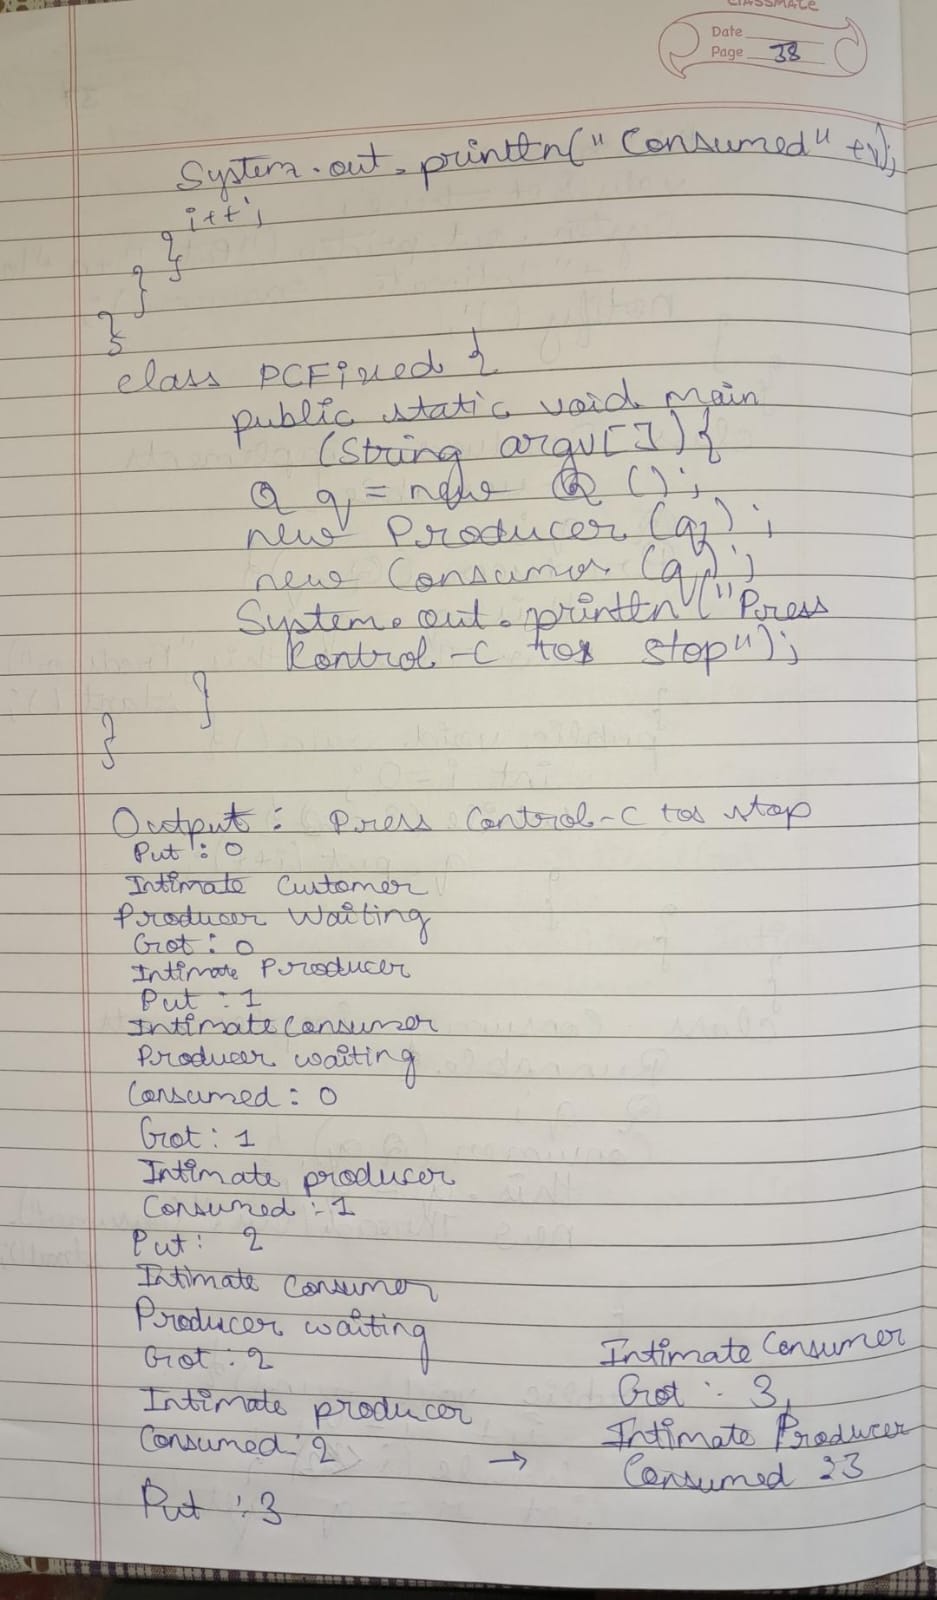 classmate
Date
Page 38
System.out.println("Consumed" +r);
i++;
}
}
}
class PCFixed {
public static void main
(String args[]) {
Q q = new Q ();
new Producer (q);
new Consumer (q);
System.out.println("Press
Control-C to stop");
}
}
Output : Press Control-C to stop
Put : 0
Intimate Customer
Producer Waiting
Got : 0
Intimate Producer
Put : 1
Intimate Consumer
Producer waiting
Consumed : 0
Got : 1
Intimate producer
Consumed : 1
Put : 2
Intimate Consumer
Producer waiting
Got : 2
Intimate producer
Consumed : 2
Put : 3
→ Intimate Consumer
Got : 3
Intimate Producer
Consumed :3